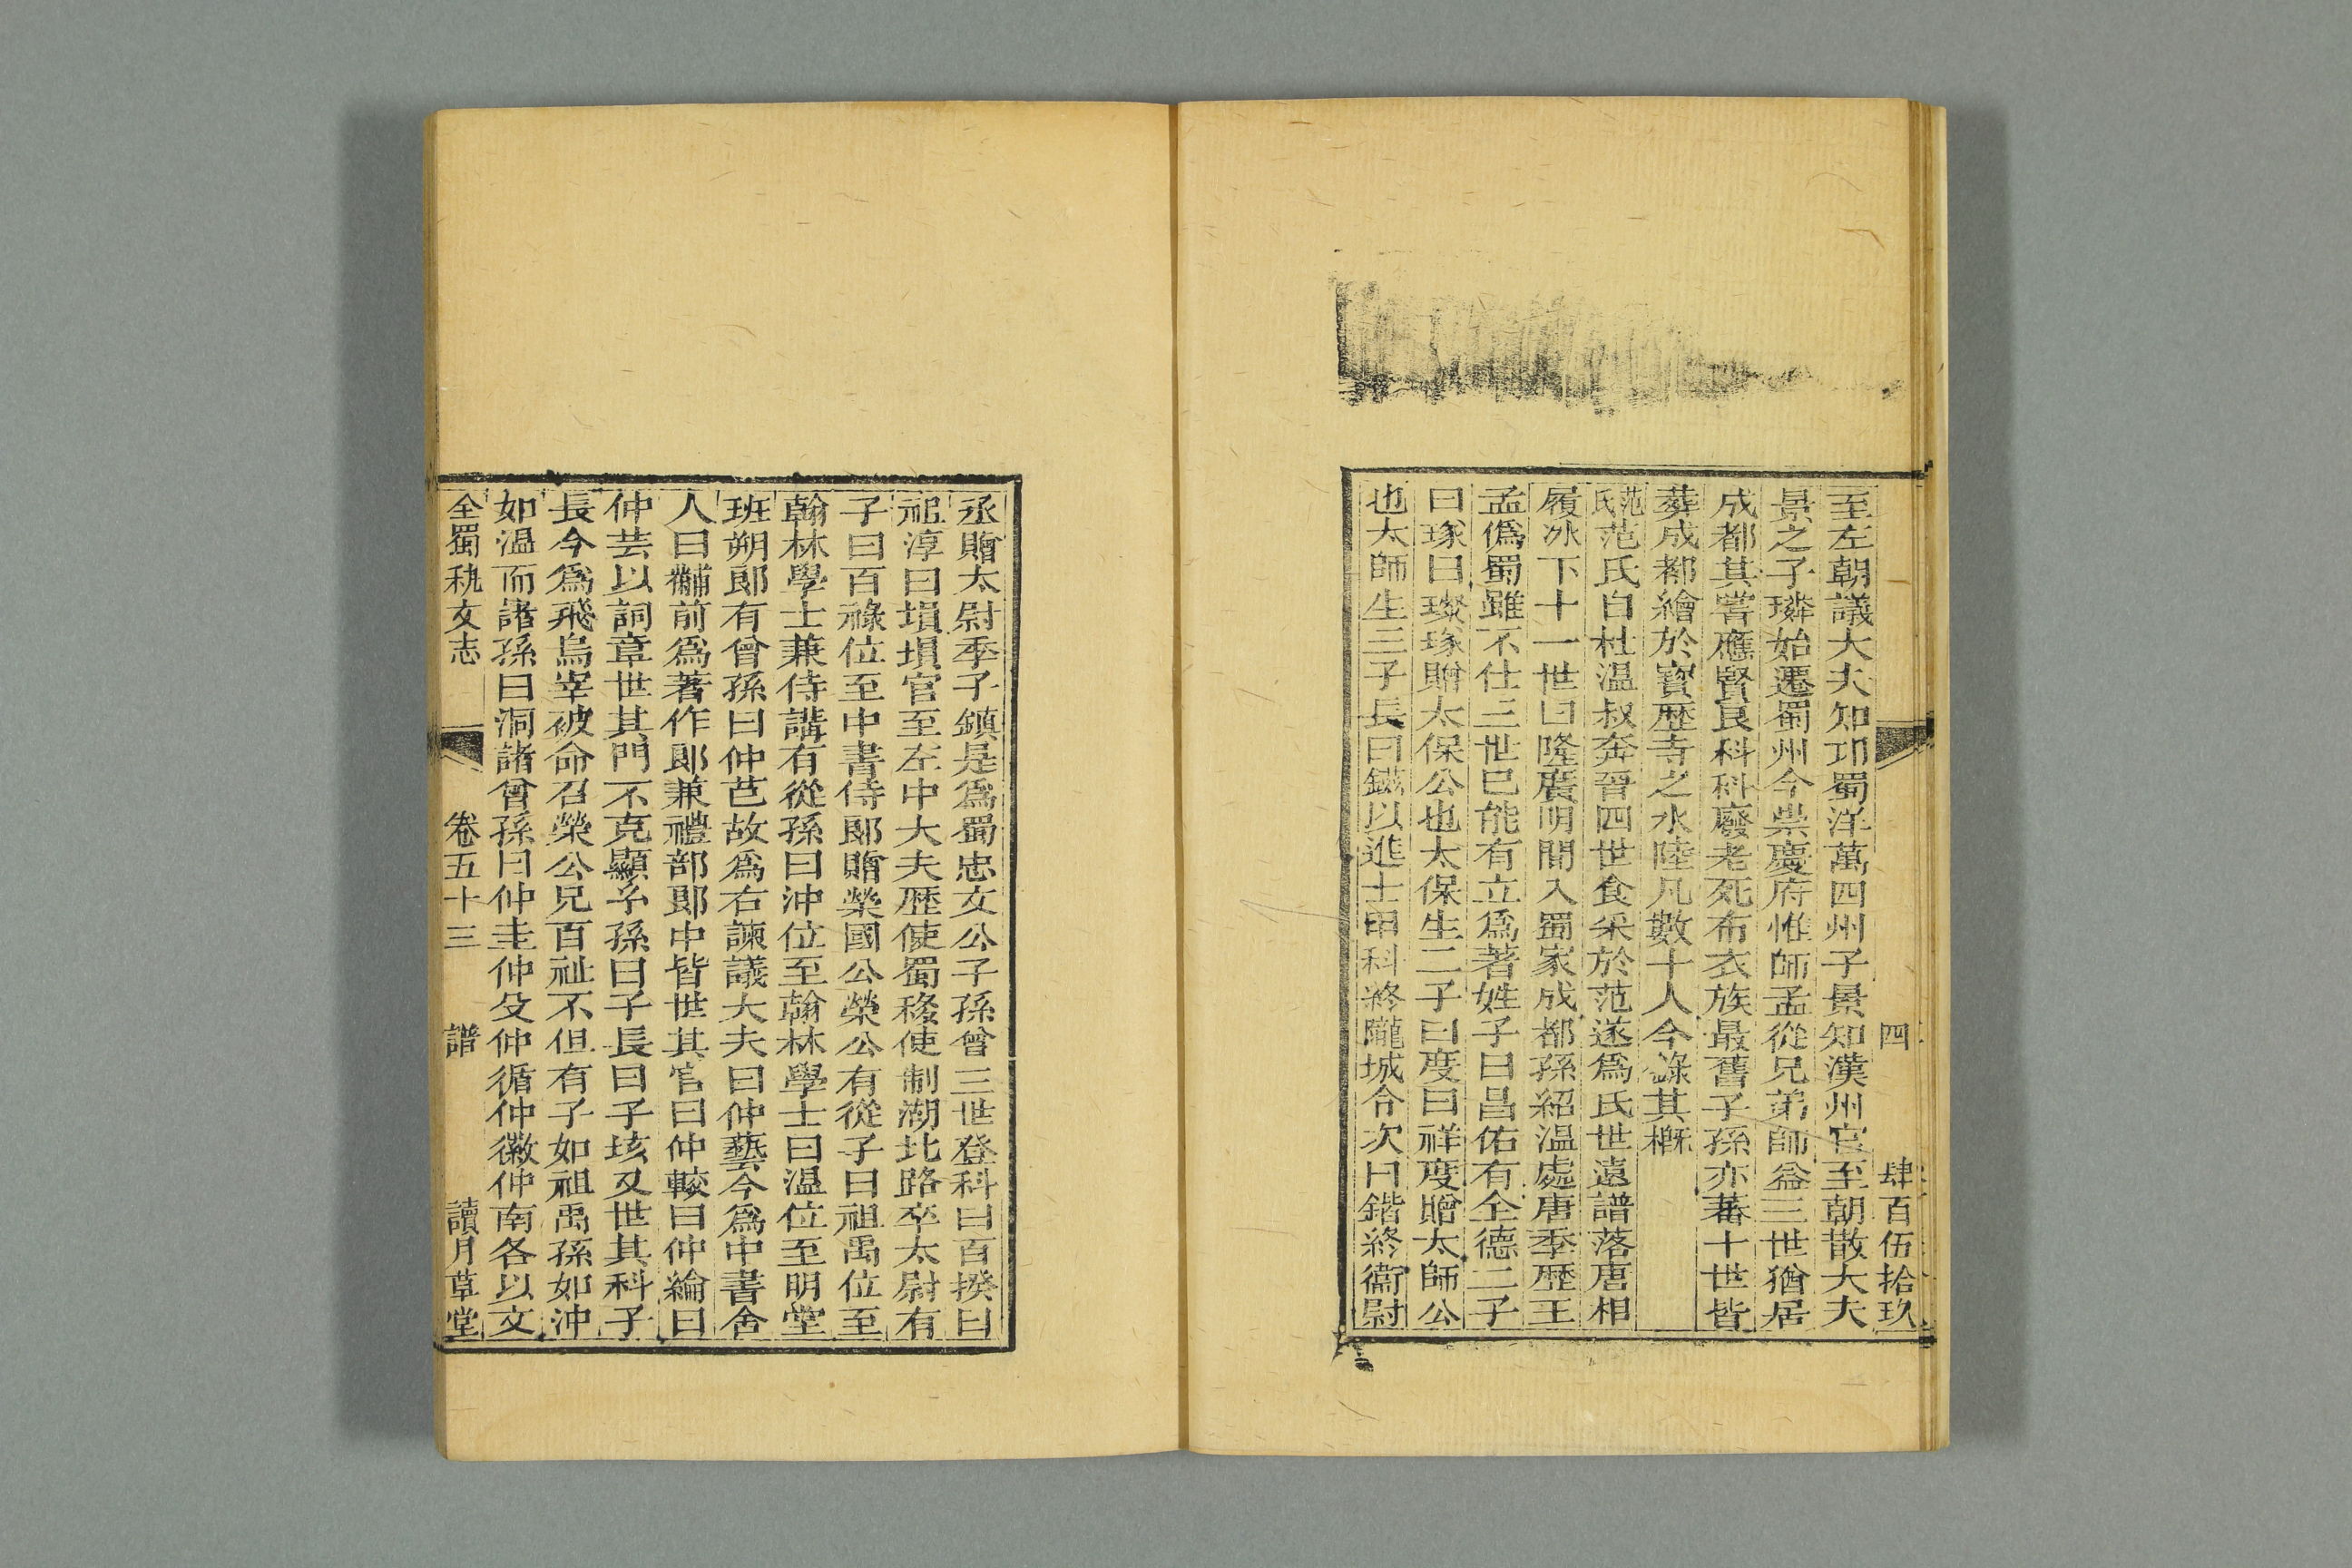 四 肆百伍拾玖
至左朝議大夫知邛蜀洋萬四州子景知漢州官至朝散大夫
景之子璘始遷蜀州今崇慶府惟師孟從兄弟師益三世猶居
成都其嘗應賢良科科廢老死布衣族最舊子孫亦蕃十世皆
葬成都繪於寶歴寺之水陸凡數十人今錄其槪
范氏范氏自杜温叔奔晋四世食采於范遂爲氏世遠譜落唐相
履冰下十一世曰隆廣明間入蜀家成都孫紹温處唐季歴王
孟僞蜀雖不仕三世已能有立爲著姓子曰昌佑有全德二子
曰琢曰璨琢贈太保公也太保生二子曰度曰祥度贈太師公
也太師生三子長曰鎡以進士甲科終隴城令次曰鍇終衞尉
丞贈太尉季子鎮是爲蜀忠文公子孫曾三世登科曰百揆曰
祖淳曰塤塤官至左中大夫歴使蜀移使制湖北路卒太尉有
子曰百祿位至中書侍郎贈榮國公榮公有從子曰祖禹位至
翰林學士兼侍講有從孫曰沖位至翰林學士曰温位至明堂
班朔郎有曾孫曰仲芑故爲右諫議大夫曰仲藝今爲中書舍
人曰黼前爲著作郎兼禮部郎中皆世其官曰仲較曰仲綸曰
仲芸以詞章世其門不克顯糸孫曰子長曰子垓又世其科子
長今爲飛烏宰被命召榮公兄百祉不但有子如祖禹孫如沖
如温而諸孫曰洞諸曾孫曰仲圭仲殳仲循仲徽仲南各以文
全蜀秇文志 卷五十三 譜 讀月草堂